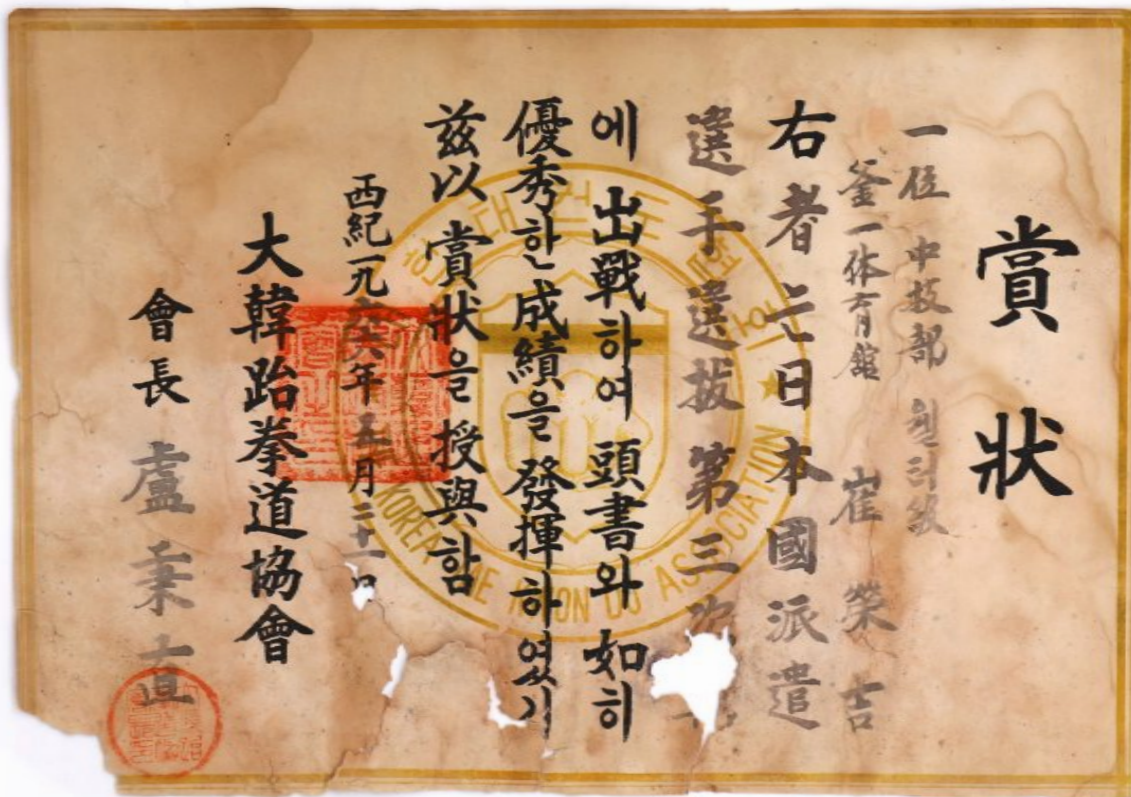 賞狀
一位 中技部 웰터級
釜一体育館 崔榮吉
右者는 日本國派遣
選手選拔第三次
에 出戰하여 頭書와 如히
優秀한 成績을 發揮하였기
玆以 賞狀을 授與함
西紀一九六六年五月二十一日
大韓跆拳道協會
會長 盧秉直
KOREA TAE KWON DO ASSOCIATION